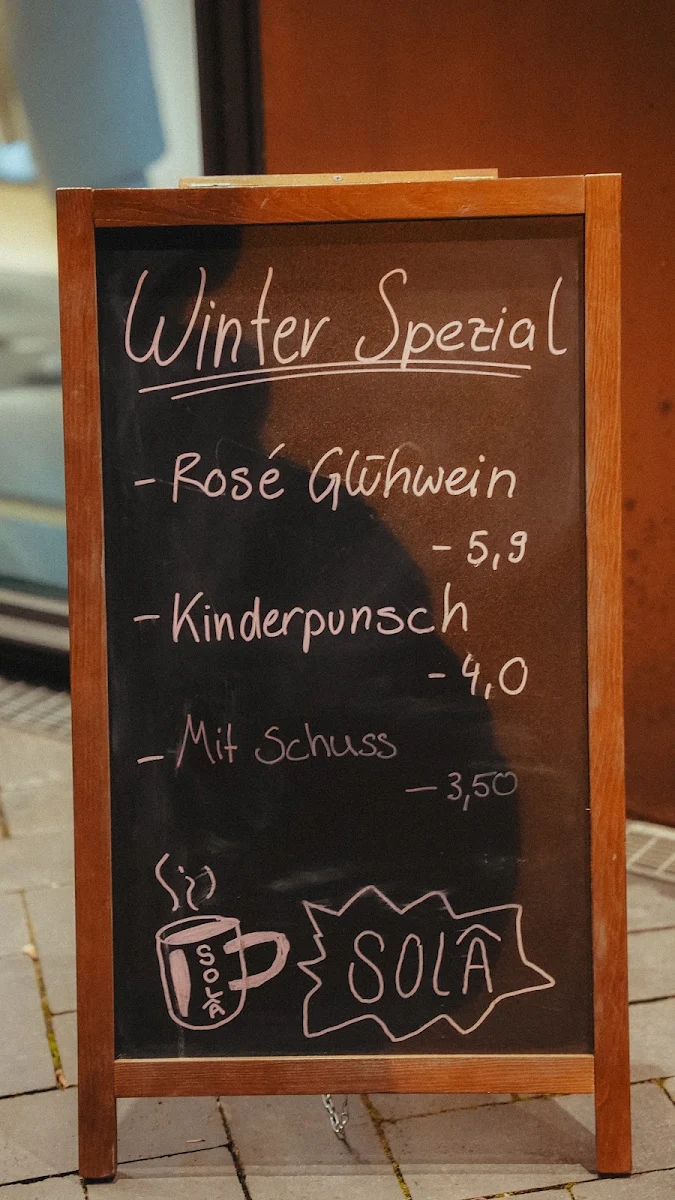 Winter Spezial
- Rosé Glühwein
- 5,9
- Kinderpunsch
- 4,0
- Mit Schuss
- 3,50
SOLÂ
SOLÂ